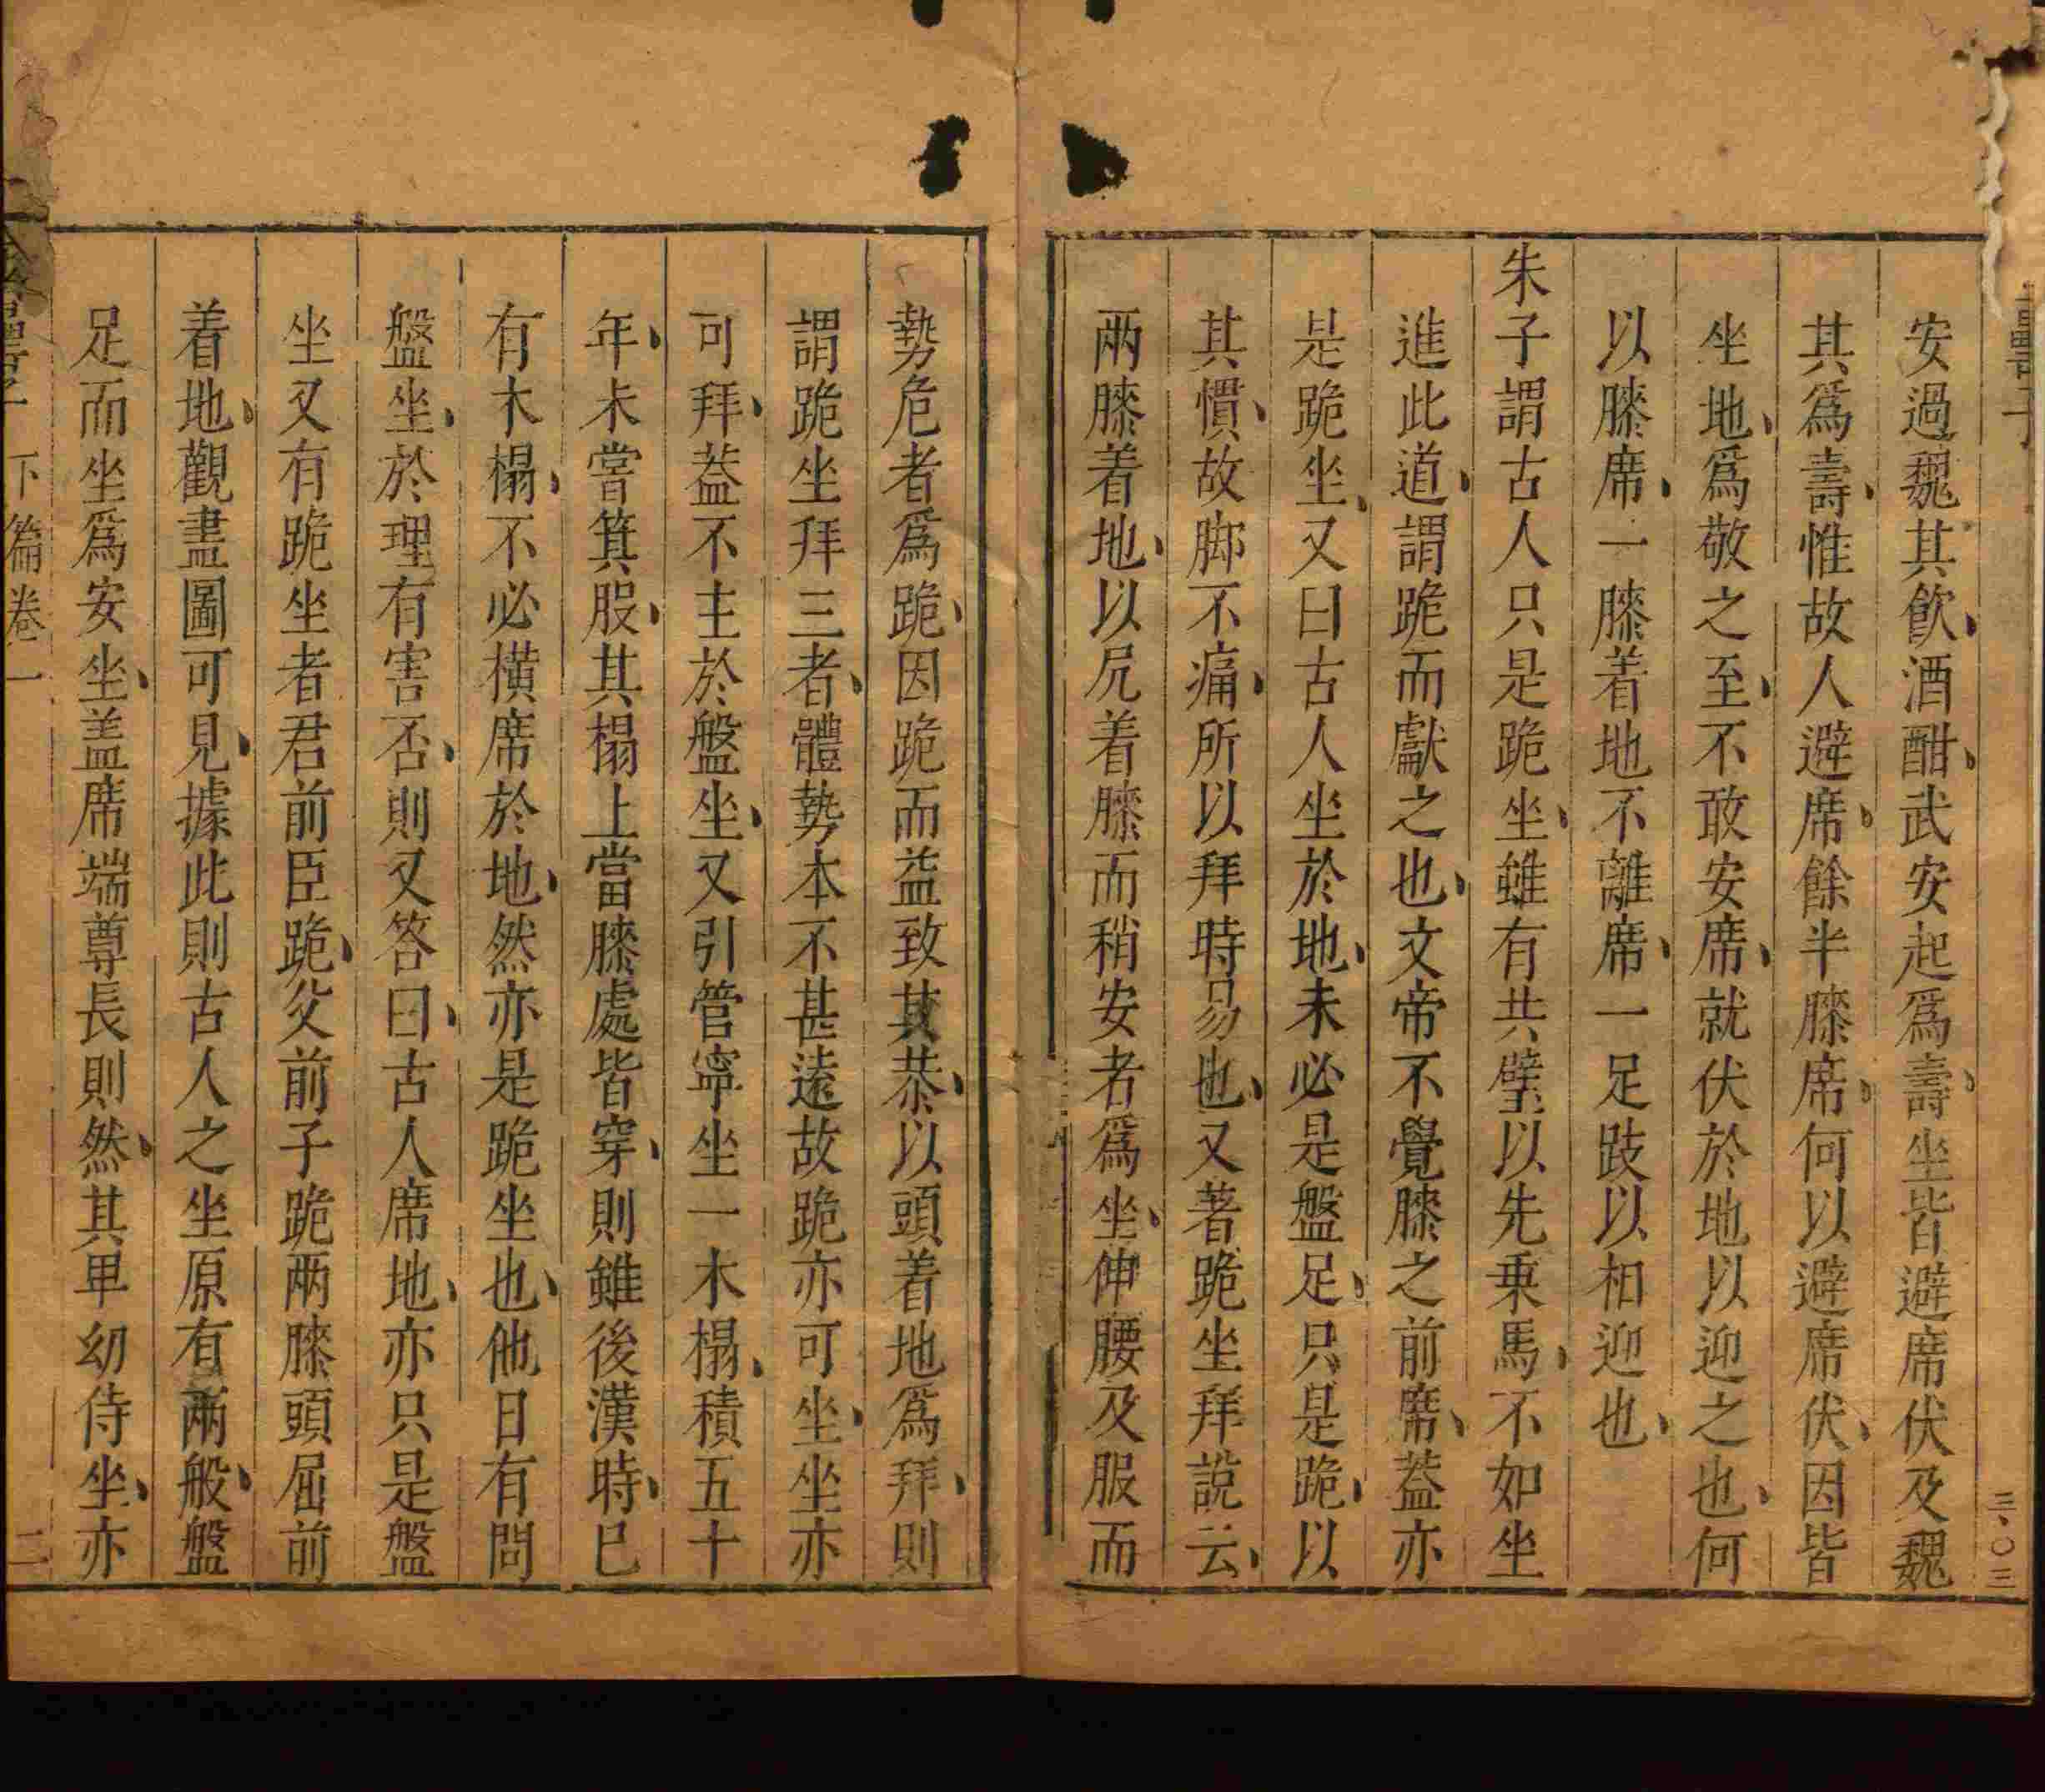 安過魏其飲酒酣武安起爲壽坐皆避席伏及魏
其爲壽惟故人避席餘半膝席何以避席伏因皆
坐地爲敬之至不敢安席就伏於地以迎之也何
以膝席一膝着地不離席一足跂以相迎也
朱子謂古人只是跪坐雖有共璧以先乗馬不如坐
進此道謂跪而獻之也文帝不覺膝之前席葢亦
是跪坐又曰古人坐於地未必是盤足只是跪以
其慣故脚不痛所以拜時易也又著跪坐拜說云
兩膝着地以尻着膝而稍安者爲坐伸腰及股而
勢危者爲跪因跪而益致其恭以頭着地爲拜則
謂跪坐拜三者體勢本不甚遠故跪亦可坐坐亦
可拜葢不主於盤坐又引管寧坐一木榻積五十
年未嘗箕股其榻上當膝處皆穿則雖後漢時已
有木榻不必横席於地然亦是跪坐也他日有問
盤坐於理有害否則又答曰古人席地亦只是盤
坐又有跪坐者君前臣跪父前子跪两膝頭屈前
着地觀畫圖可見據此則古人之坐原有兩般盤
足而坐爲安坐盖席端尊長則然其卑幼侍坐亦
下篇卷一
二